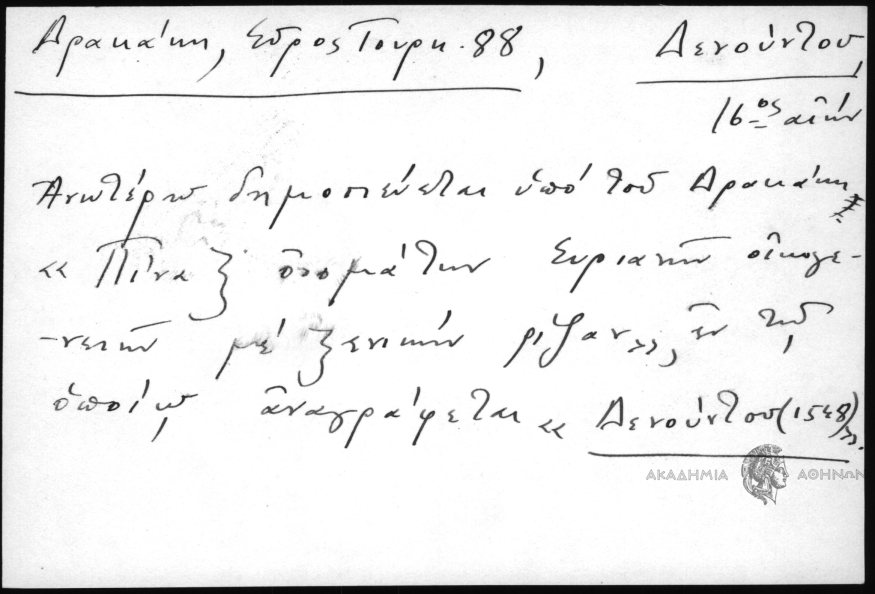 Δρακάκη, Σῦρος Τουρκ. 88, Δενούντου,
16-ος αἰών
Ἀνωτέρω δημοσιεύεται ὑπό τοῦ Δρακάκη
«Πίναξ ὀνομάτων Συριανῶν οἰκογε-
-νειῶν μέ ξενικήν ρίζαν», ἐν τῷ
ὁποίῳ ἀναγράφεται «Δενούντου (1548)».
ΑΚΑΔΗΜΙΑ ΑΘΗΝΩΝ